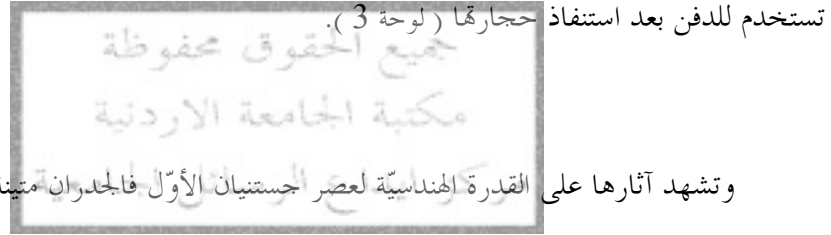 تستخدم للدفن بعد استنفاذ حجارتها ( لوحة 3 ).
جميع الحقوق محفوظة
مكتبة الجامعة الاردنية
وتشهد آثارها على القدرة الهندسيّة لعصر جستنيان الأوّل فالجدران متينة